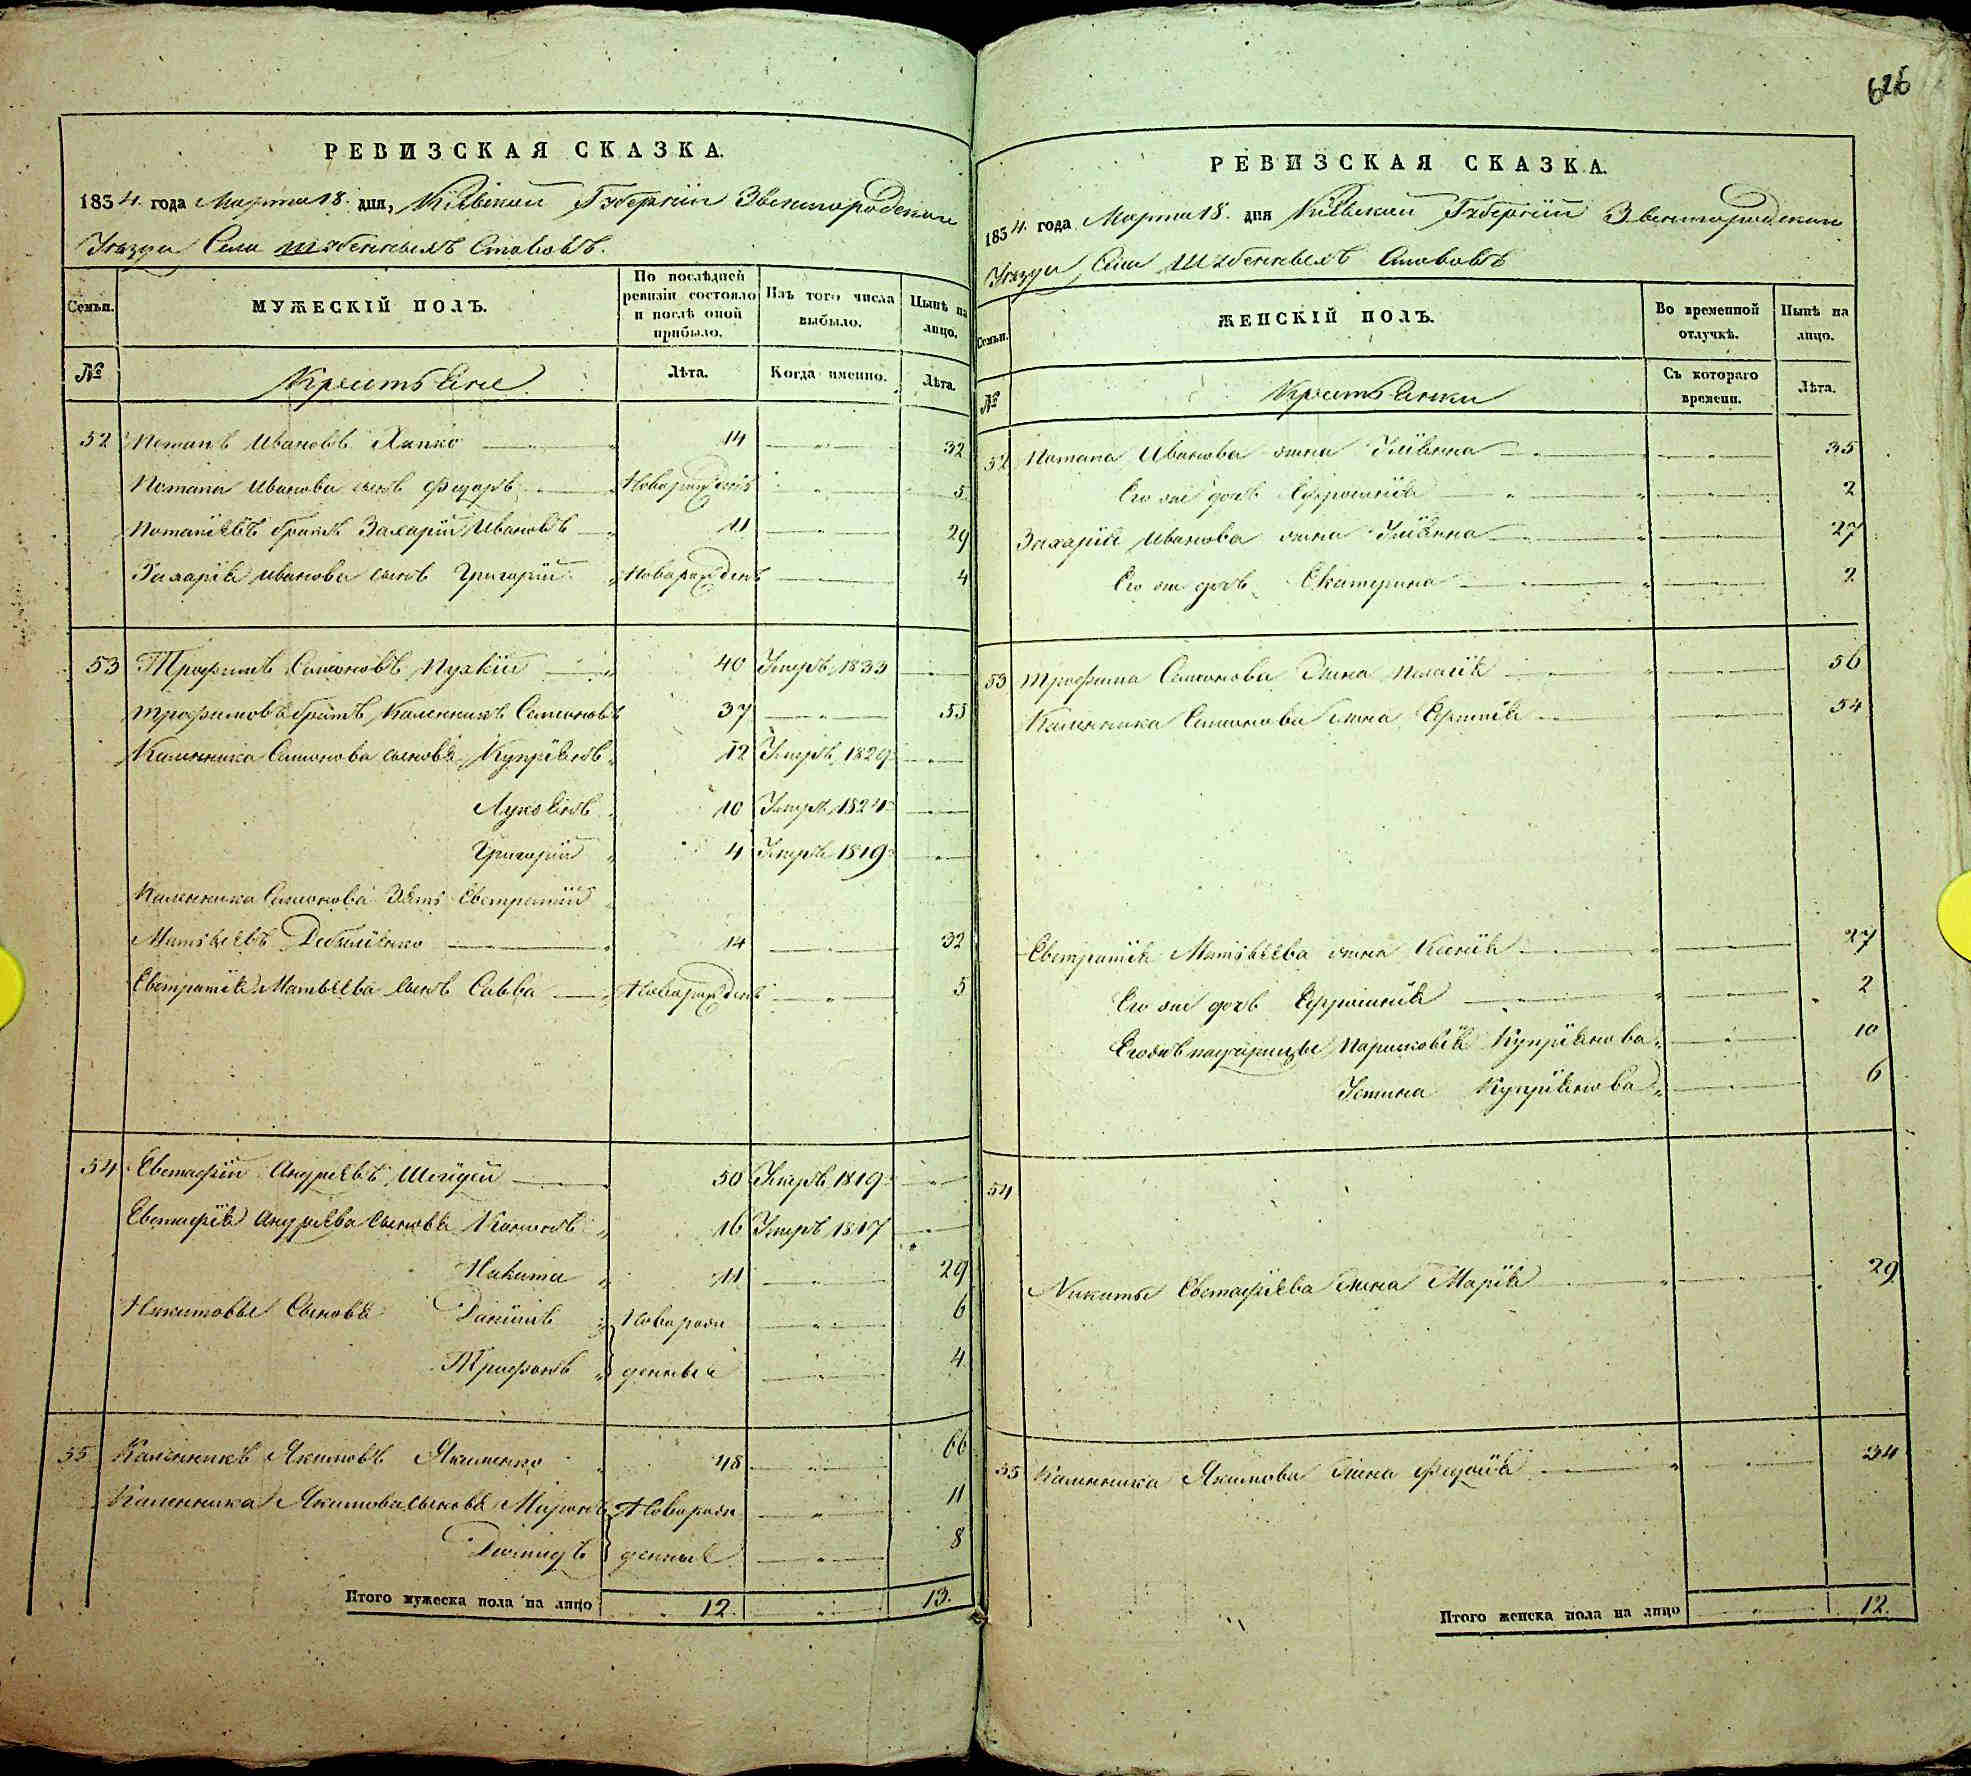 626
РЕВИЗСКАЯ СКАЗКА.
1834. года Марта 18. дня, Кіевской Губерніи Звенигородскаго
Уѣзда Села Шубенныхъ Ставовъ.
Семьи.
МУЖЕСКІЙ ПОЛЪ.
По послѣдней ревизіи состояло и послѣ оной прибыло.
Изъ того числа выбыло.
Нынѣ на лицо.
№
Крестьяне
Лѣта.
Когда именно.
Лѣта.
52 Потапъ Ивановъ 14 32
Потапа Иванова сынъ Федоръ Новорожденъ 5
Потаповъ братъ Захарій Ивановъ 11 29
Захарія Иванова сынъ Григорій Новорожденъ 4
53 Трофимъ Самсоновъ 40 Умеръ 1833
Трофимовъ братъ Каленникъ Самсоновъ 37 55
Каленника Самсонова сыновья Купріянъ 12 Умеръ 1829
Лукьянъ 10 Умеръ 1824
Григорій 4 Умеръ 1819
Каленника Самсонова Зять Евстратій
Матвѣевъ 14 32
Евстратія Матвѣева сынъ Савва Новорожденъ 5
54 Евстафій Андреевъ 50 Умеръ 1819
Евстафія Андреева сыновья Кононъ 16 Умеръ 1817
Никита 11 29
Никитовы Сыновья Даніилъ Новорож 6
Трифонъ денные 4
55 Каленникъ Якимовъ Якименко 48 66
Каленника Якимова сыновья Миронъ Новорож 11
Діомидъ денные 8
Итого мужеска пола на лицо 12. 13.
РЕВИЗСКАЯ СКАЗКА.
1834. года Марта 18. дня Кіевской Губерніи Звенигородскаго
Уѣзда Села Шубенныхъ Ставовъ
Семьи.
ЖЕНСКІЙ ПОЛЪ.
Во временной отлучкѣ.
Нынѣ на лицо.
№
Крестьянки
Съ котораго времени.
Лѣта.
52 Потапа Иванова жена Уліянна 35
Его же дочь Ефросинія 2
Захарія Иванова жена Уліянна 27
Его же дочь Екатерина 2
53 Трофима Самсонова жена Пелагія 56
Каленника Самсонова жена 54
Евстратія Матвѣева жена Ксенія 27
Его же дочь Ефросинія 2
Его же падчерицы Парасковія Купріянова 10
Устина Купріянова 6
54
Никиты Евстафіева жена Марія 29
55 Каленника Якимова жена Федосія 34
Итого женска пола на лицо 12.